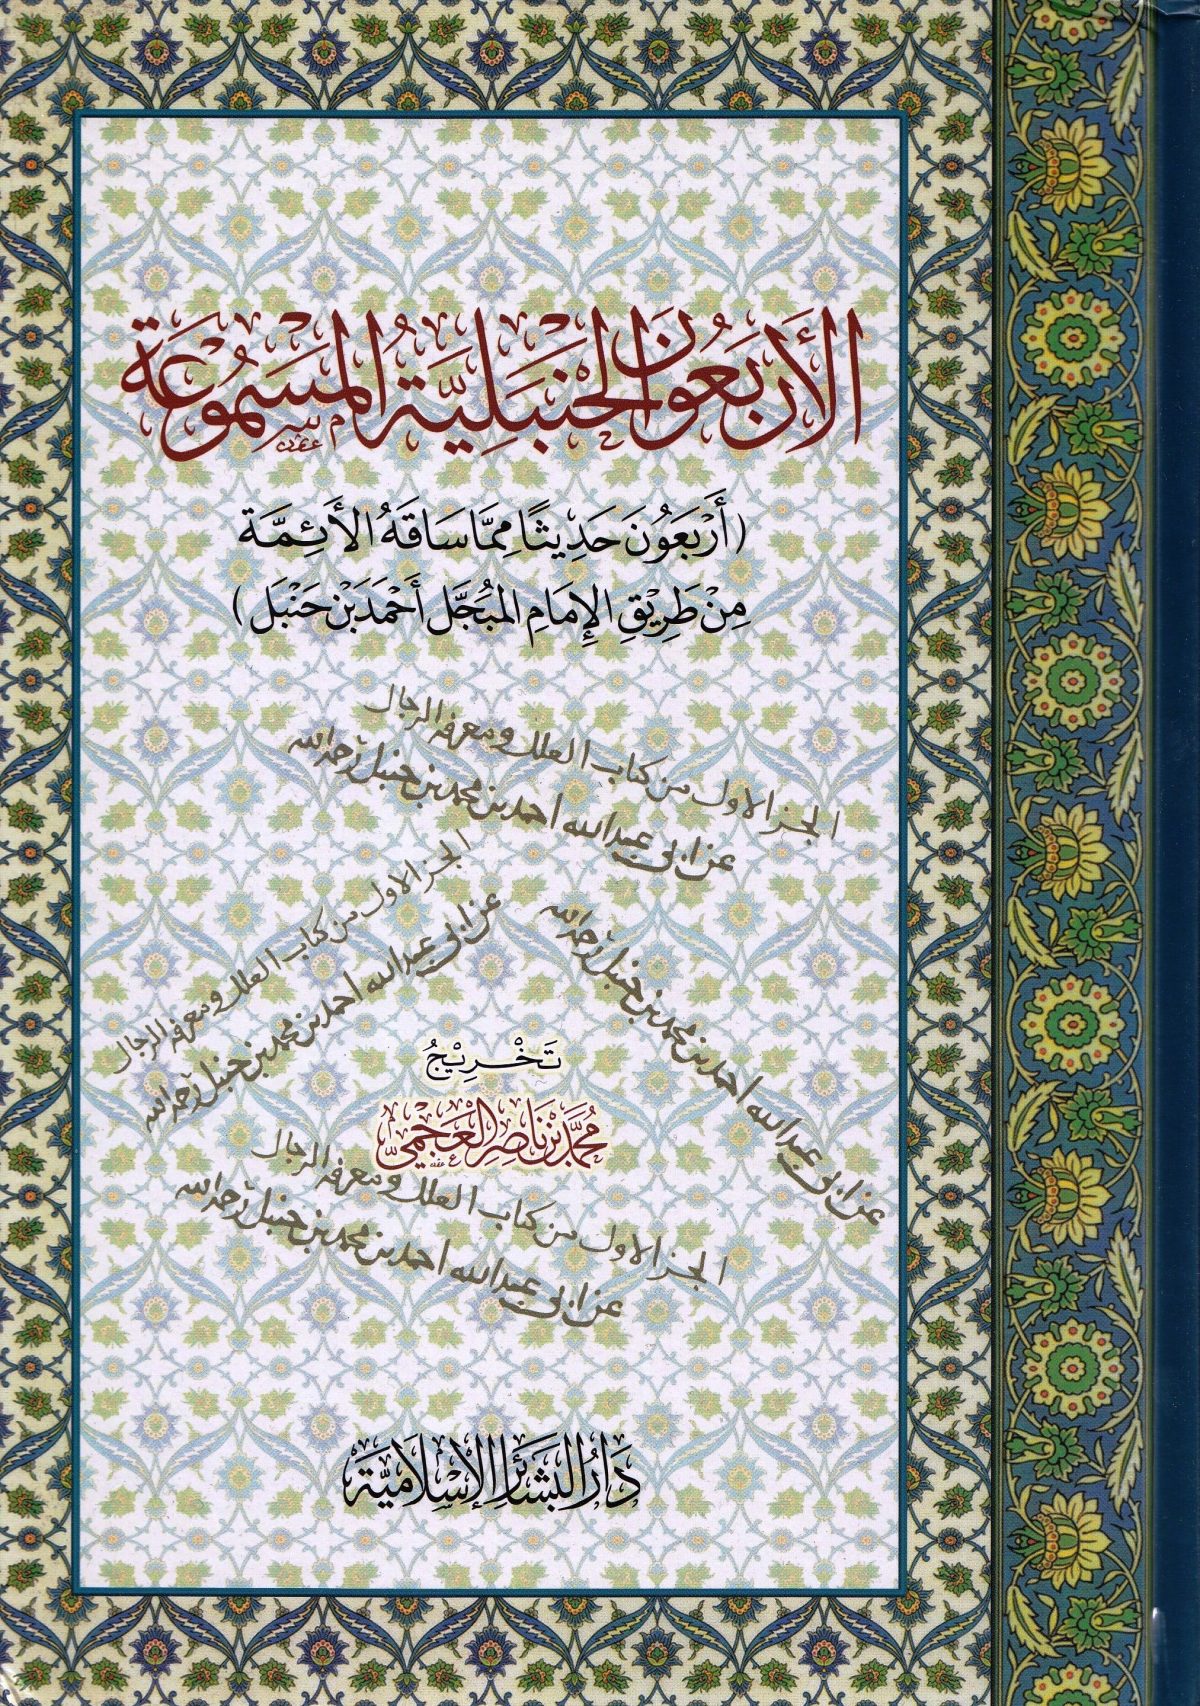 الأَرْبَعُونَ الحَنْبَلِيَّةُ المَسْمُوعَةُ
(أَرْبَعُونَ حَدِيثًا مِمَّا سَاقَهُ الأَئِمَّة
مِنْ طَرِيْقِ الإِمَامِ المُبَجَّل أَحْمَدَ بْنِ حَنْبَل)
الجز الاول من كتاب العلل ومعرفه الرجال
عن ابي عبد الله احمد بن محمد بن حنبل رحمه الله
الجز الاول من كتاب العلل ومعرفه الرجال
عن ابي عبد الله احمد بن محمد بن حنبل رحمه الله
عن ابي عبد الله احمد بن محمد بن حنبل رحمه الله
تَخْرِيْجُ
مُحَمَّد بْن نَاصِر العَجْمِيّ
الجز الاول من كتاب العلل ومعرفه الرجال
عن ابي عبد الله احمد بن محمد بن حنبل رحمه الله
دَارُ البَشَائِرِ الإِسْلَامِيَّة